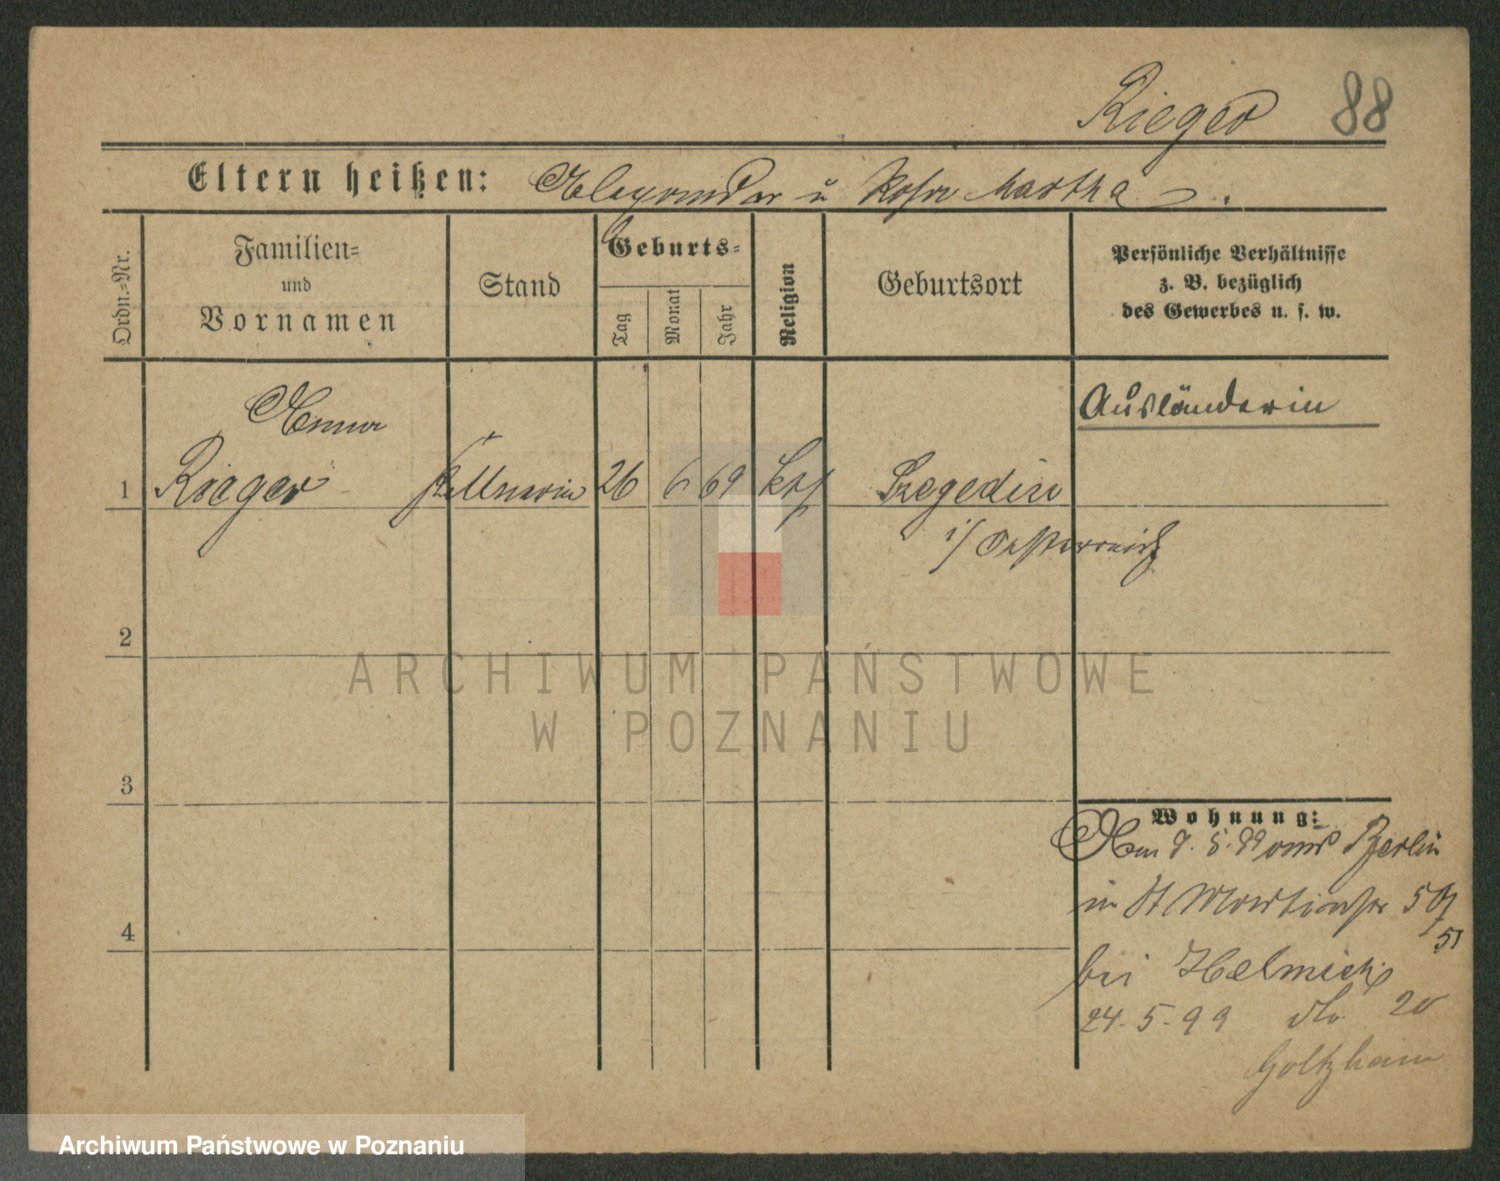 Rieger 88
Eltern heißen: Alexander u Rosa Martha
Ordn.-Nr.
Familien-
und
Vornamen
Stand
Geburts-
Tag
Monat
Jahr
Religion
Geburtsort
Persönliche Verhältnisse
z. B. bezüglich
des Gewerbes u. s. w.
Ausländerin
Anna
1 Rieger Kellnerin 26 6 69 kth Szegedin
i/ Oesterreich
2
ARCHIWUM PAŃSTWOWE
W POZNANIU
3
Wohnung:
Am 9. 5. 99 aus Berlin
in St Martinstr
bei Helmich
24. 5. 99 20
4
Archiwum Państwowe w Poznaniu